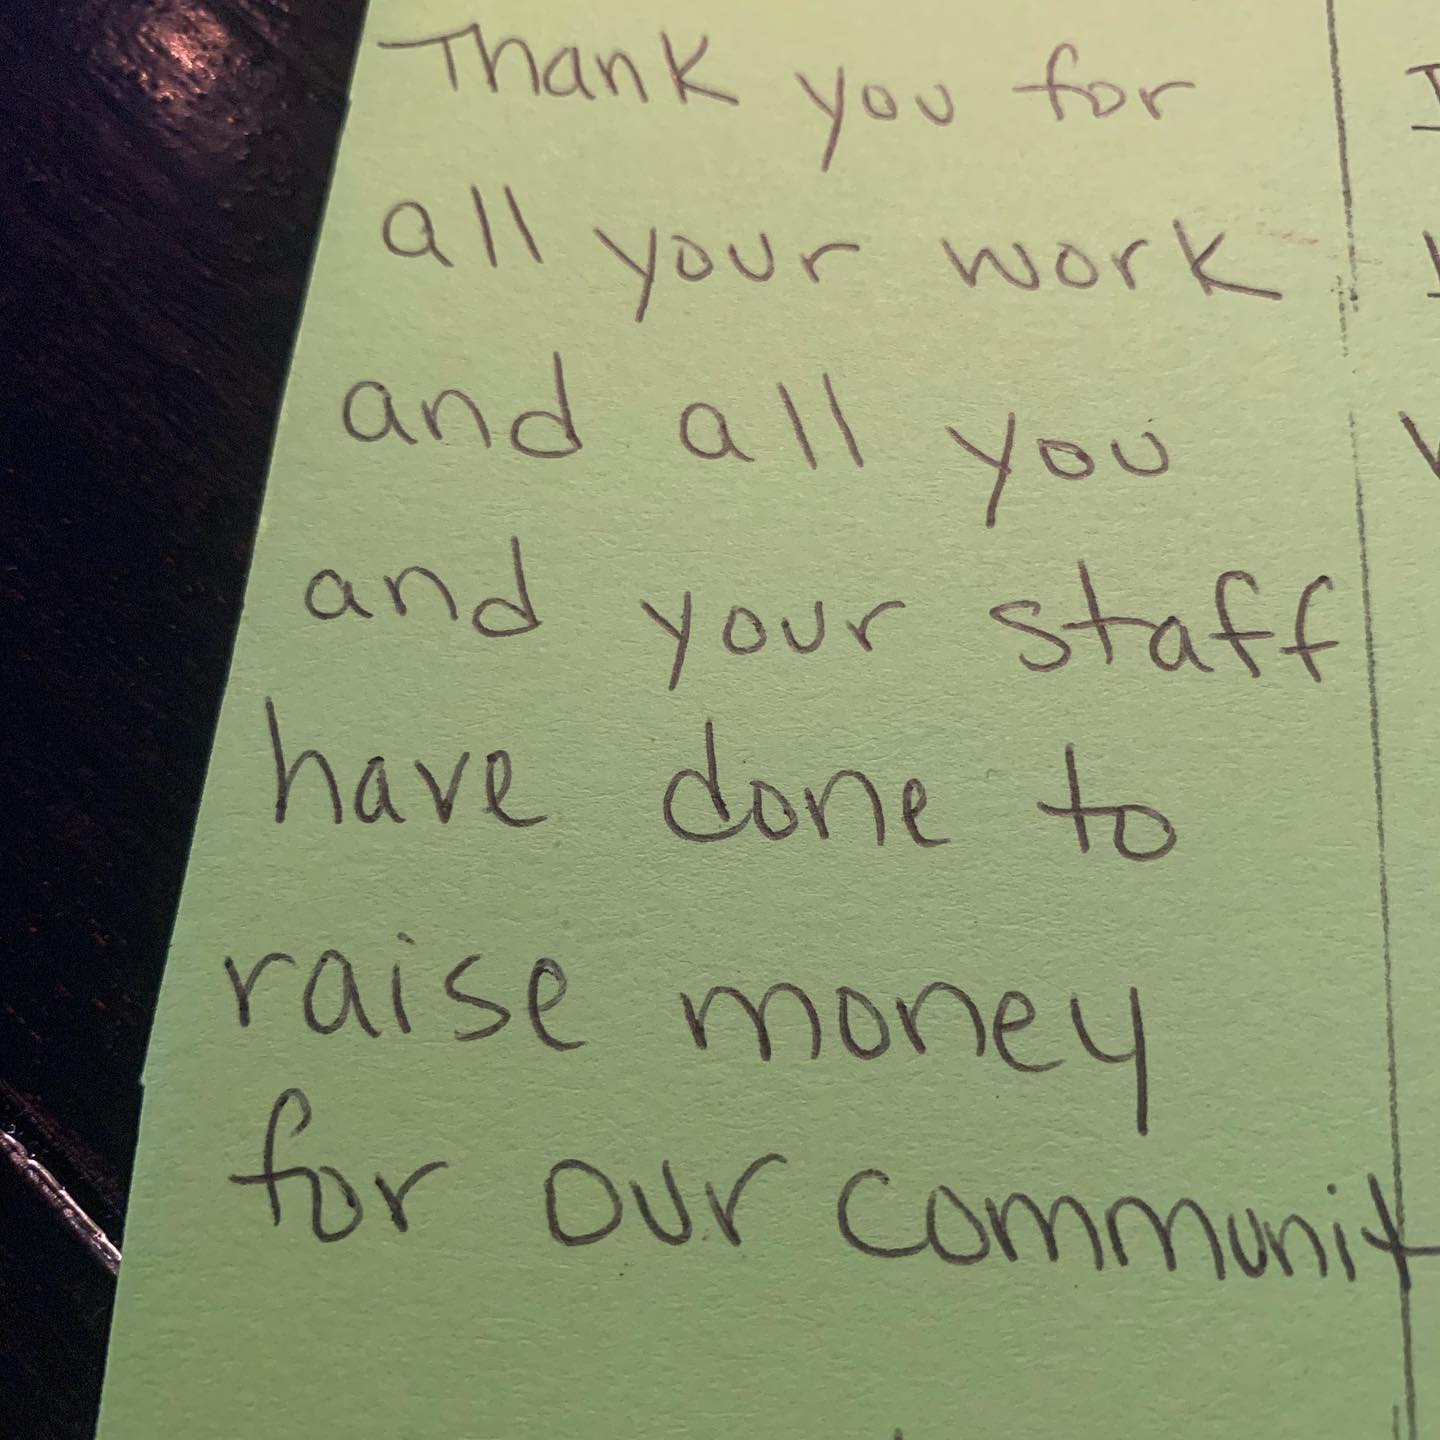 Thank you for
all your work
and all you
and your staff
have done to
raise money
for our communit